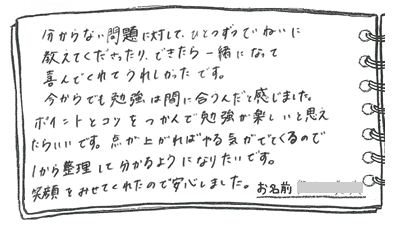 分からない問題に対して、ひとつずつていねいに
教えてくださったり、できたら一緒になって
喜んでくれてうれしかったです。
今からでも勉強は間に合うんだと感じました。
ポイントとコツをつかんで勉強が楽しいと思え
たらいいです。点が上がればやる気がでてくるので
1から整理して分かるようになりたいです。
笑顔をみせてくれたので安心しました。 お名前